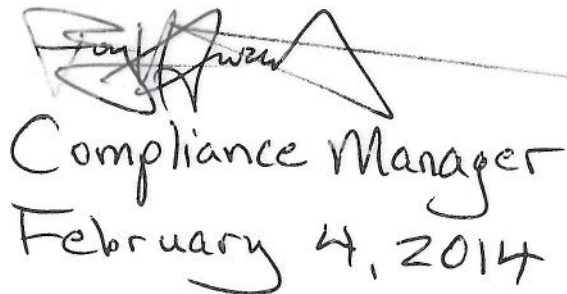 Compliance Manager
February 4, 2014